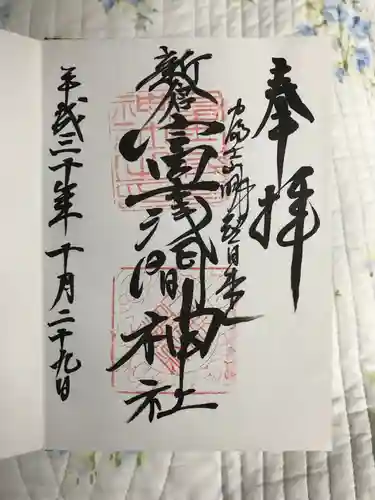 奉拝
新倉富士浅間神社
平成三十年十月二十九日